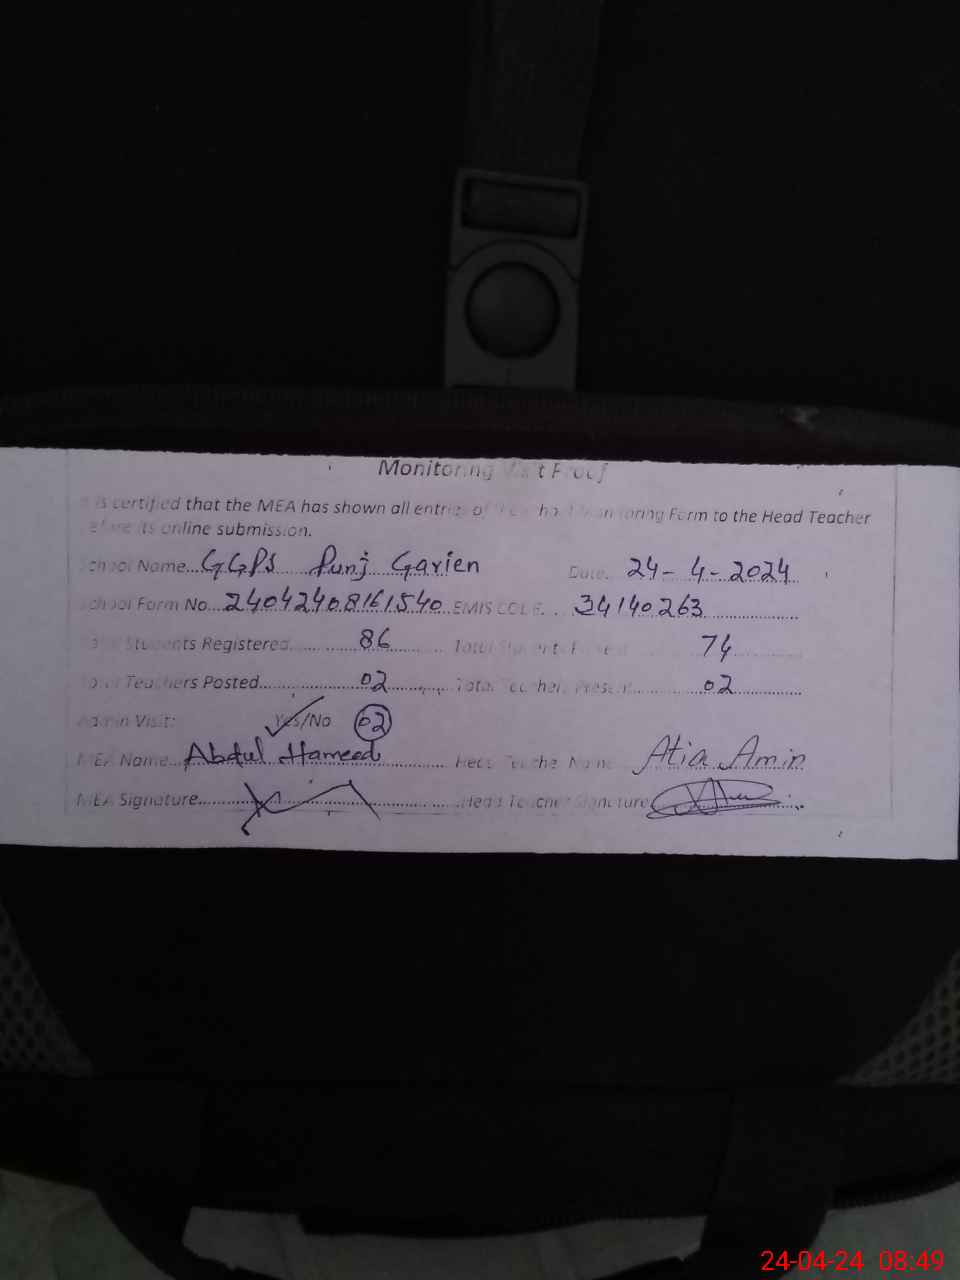 Monitoring Visit Proof
is certified that the MEA has shown all entries of the School Monitoring Form to the Head Teacher
before its online submission.
School Name...GGPS Punj Garien Date. 24-4-2024
School Form No...24042408161540 EMIS CODE... 34140263
Total Students Registered...... 86 Total Students Present 74
Total Teachers Posted...... 02 Total Teachers Present...... 02
Admin Visit: Yes/No 02
MEA Name...Abdul Hameed Head Teacher Name Atia Amin
MEA Signature...... Head Teacher Signature
24-04-24 08:49